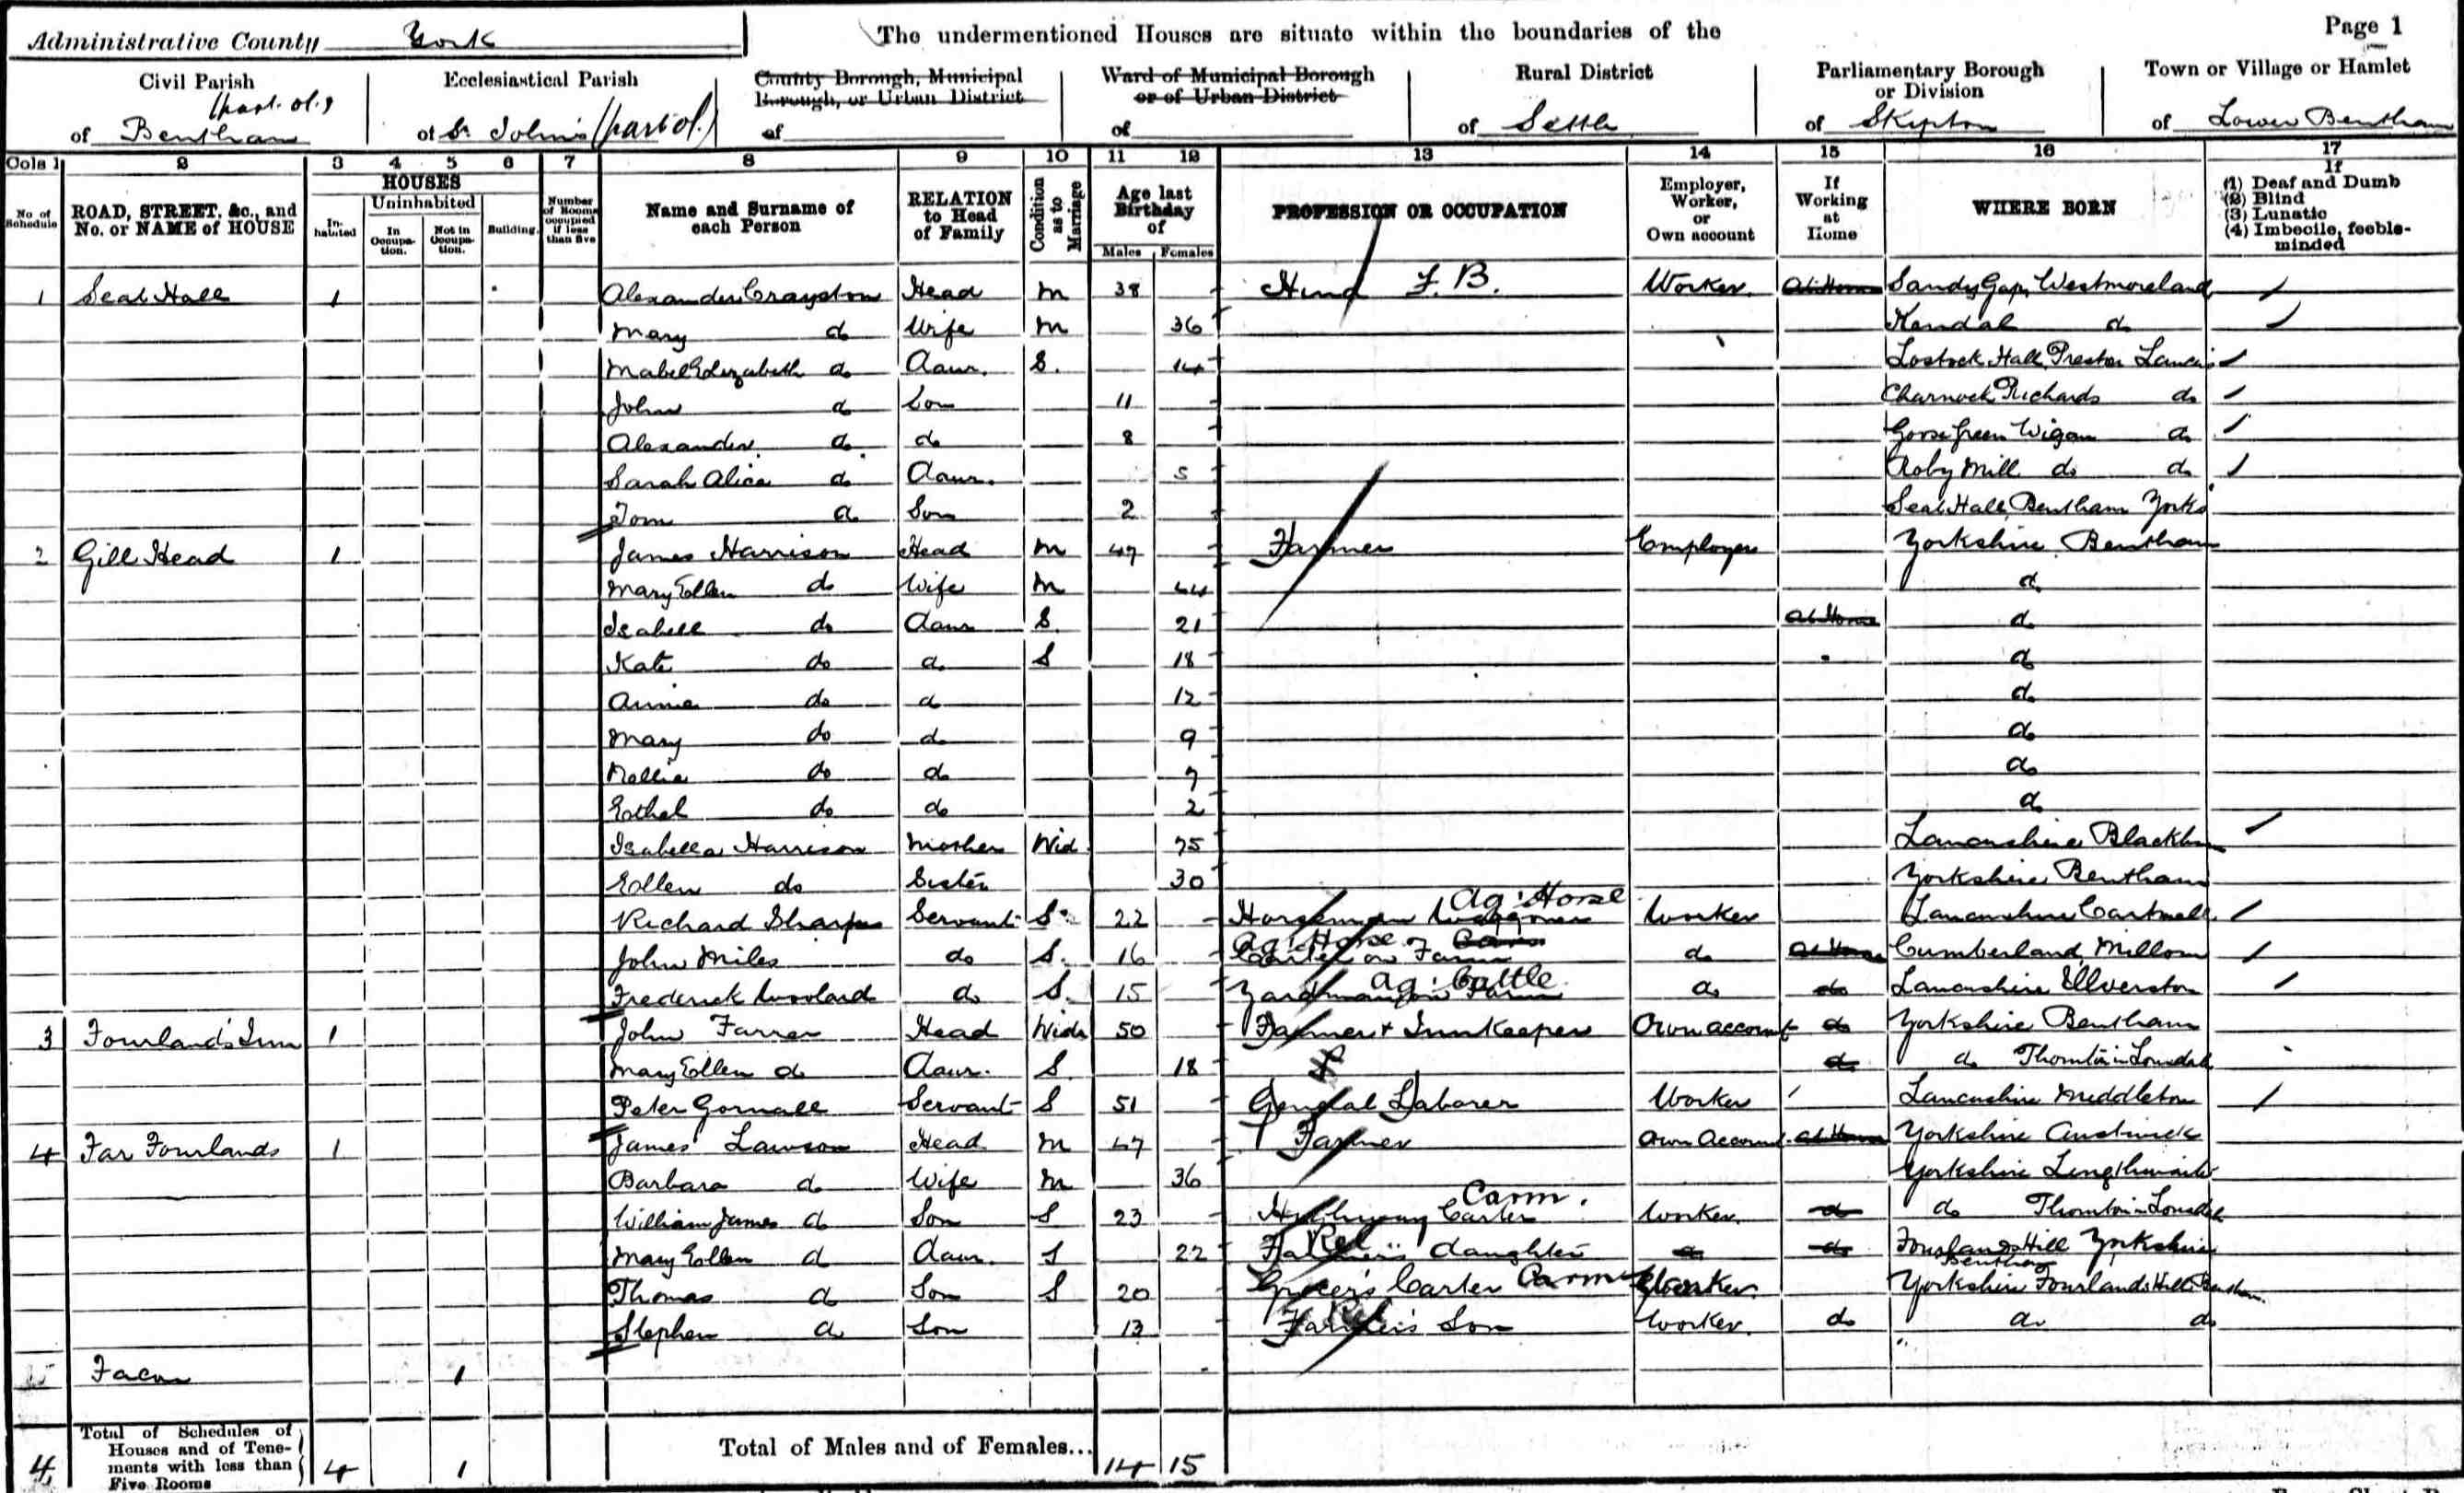 Administrative County York The undermentioned Houses are situate within the boundaries of the Page 1
Civil Parish Ecclesiastical Parish County Borough, Municipal Borough, or Urban District Ward of Municipal Borough or of Urban District Rural District Parliamentary Borough or Division Town or Village or Hamlet
of Bentham (part of) of St. John's (part of) of of of Settle of Skipton of Lower Bentham
Cols 1 2 3 4 5 6 7 8 9 10 11 12 13 14 15 16 17
No. of Schedule ROAD, STREET, &c., and No. or NAME of HOUSE HOUSES Inhabited Uninhabited In Occupation. Not in Occupation. Building. Number of Rooms occupied if less than five Name and Surname of each Person RELATION to Head of Family Condition as to Marriage Age last Birthday of Males Females PROFESSION OR OCCUPATION Employer, Worker, or Own account If Working at Home WHERE BORN If (1) Deaf and Dumb (2) Blind (3) Lunatic (4) Imbecile, feeble-minded
1 Seat Hall 1 Alexander Crayston Head M 38 Hind F.B. Worker At Home Sandy Gap, Westmoreland
Mary do Wife M 36 Kendal do
Mabel Elizabeth do Daur. S. 14 Lostock Hall Preston Lancs
John do Son 11 Charnock Richards do
Alexander do do 8 Goose Green Wigan do
Sarah Alice do Daur. 5 Roby Mill do do
Tom do Son 2 Seat Hall, Bentham Yorks
2 Gill Head 1 James Harrison Head M 47 Farmer Employer Yorkshire Bentham
Mary Ellen do Wife M 44 do
Isabell do Daur S. 21 At Home do
Kate do do S 18 do
Annie do do 12 do
Mary do do 9 do
Nellie do do 7 do
Ethel do do 2 do
Isabella Harrison Mother Wid. 75 Lancashire Blackburn
Ellen do Sister 30 Yorkshire Bentham
Richard Sharpe Servant S. 22 Horseman Waggoner Ag: Horse Worker Lancashire Cartmell
John Miles do S. 16 Carter on Farm Ag: Horse do At Home Cumberland Millom
Frederick Woolard do S. 15 Yardman on Farm Ag: Cattle do do Lancashire Ulverston
3 Fourlands Inn 1 John Farrer Head Widr 50 Farmer & Innkeeper Own account do Yorkshire Bentham
Mary Ellen do Daur. S. 18 do do Thornton in Lonsdale
Peter Gornall Servant S 51 General Laborer Worker Lancashire Middleton
4 Far Fourlands 1 James Lawson Head M 47 Farmer Own Account At Home Yorkshire Austwick
Barbara do Wife M 36 Yorkshire
William James do Son S 23 Highway Carter Carm. Worker do do Thornton in Lonsdale
Mary Ellen do Daur. S 22 Farmer's daughter Ret do do Fourlands Hill Yorkshire Bentham
Thomas do Son S 20 Grocer's Carter Carm Worker Yorkshire Fourlands Hill Bentham
Stephen do Son 13 Farmer's Son Worker do do do
Facon 1
4 Total of Schedules of Houses and of Tenements with less than Five Rooms 4 1 Total of Males and of Females... 14 15